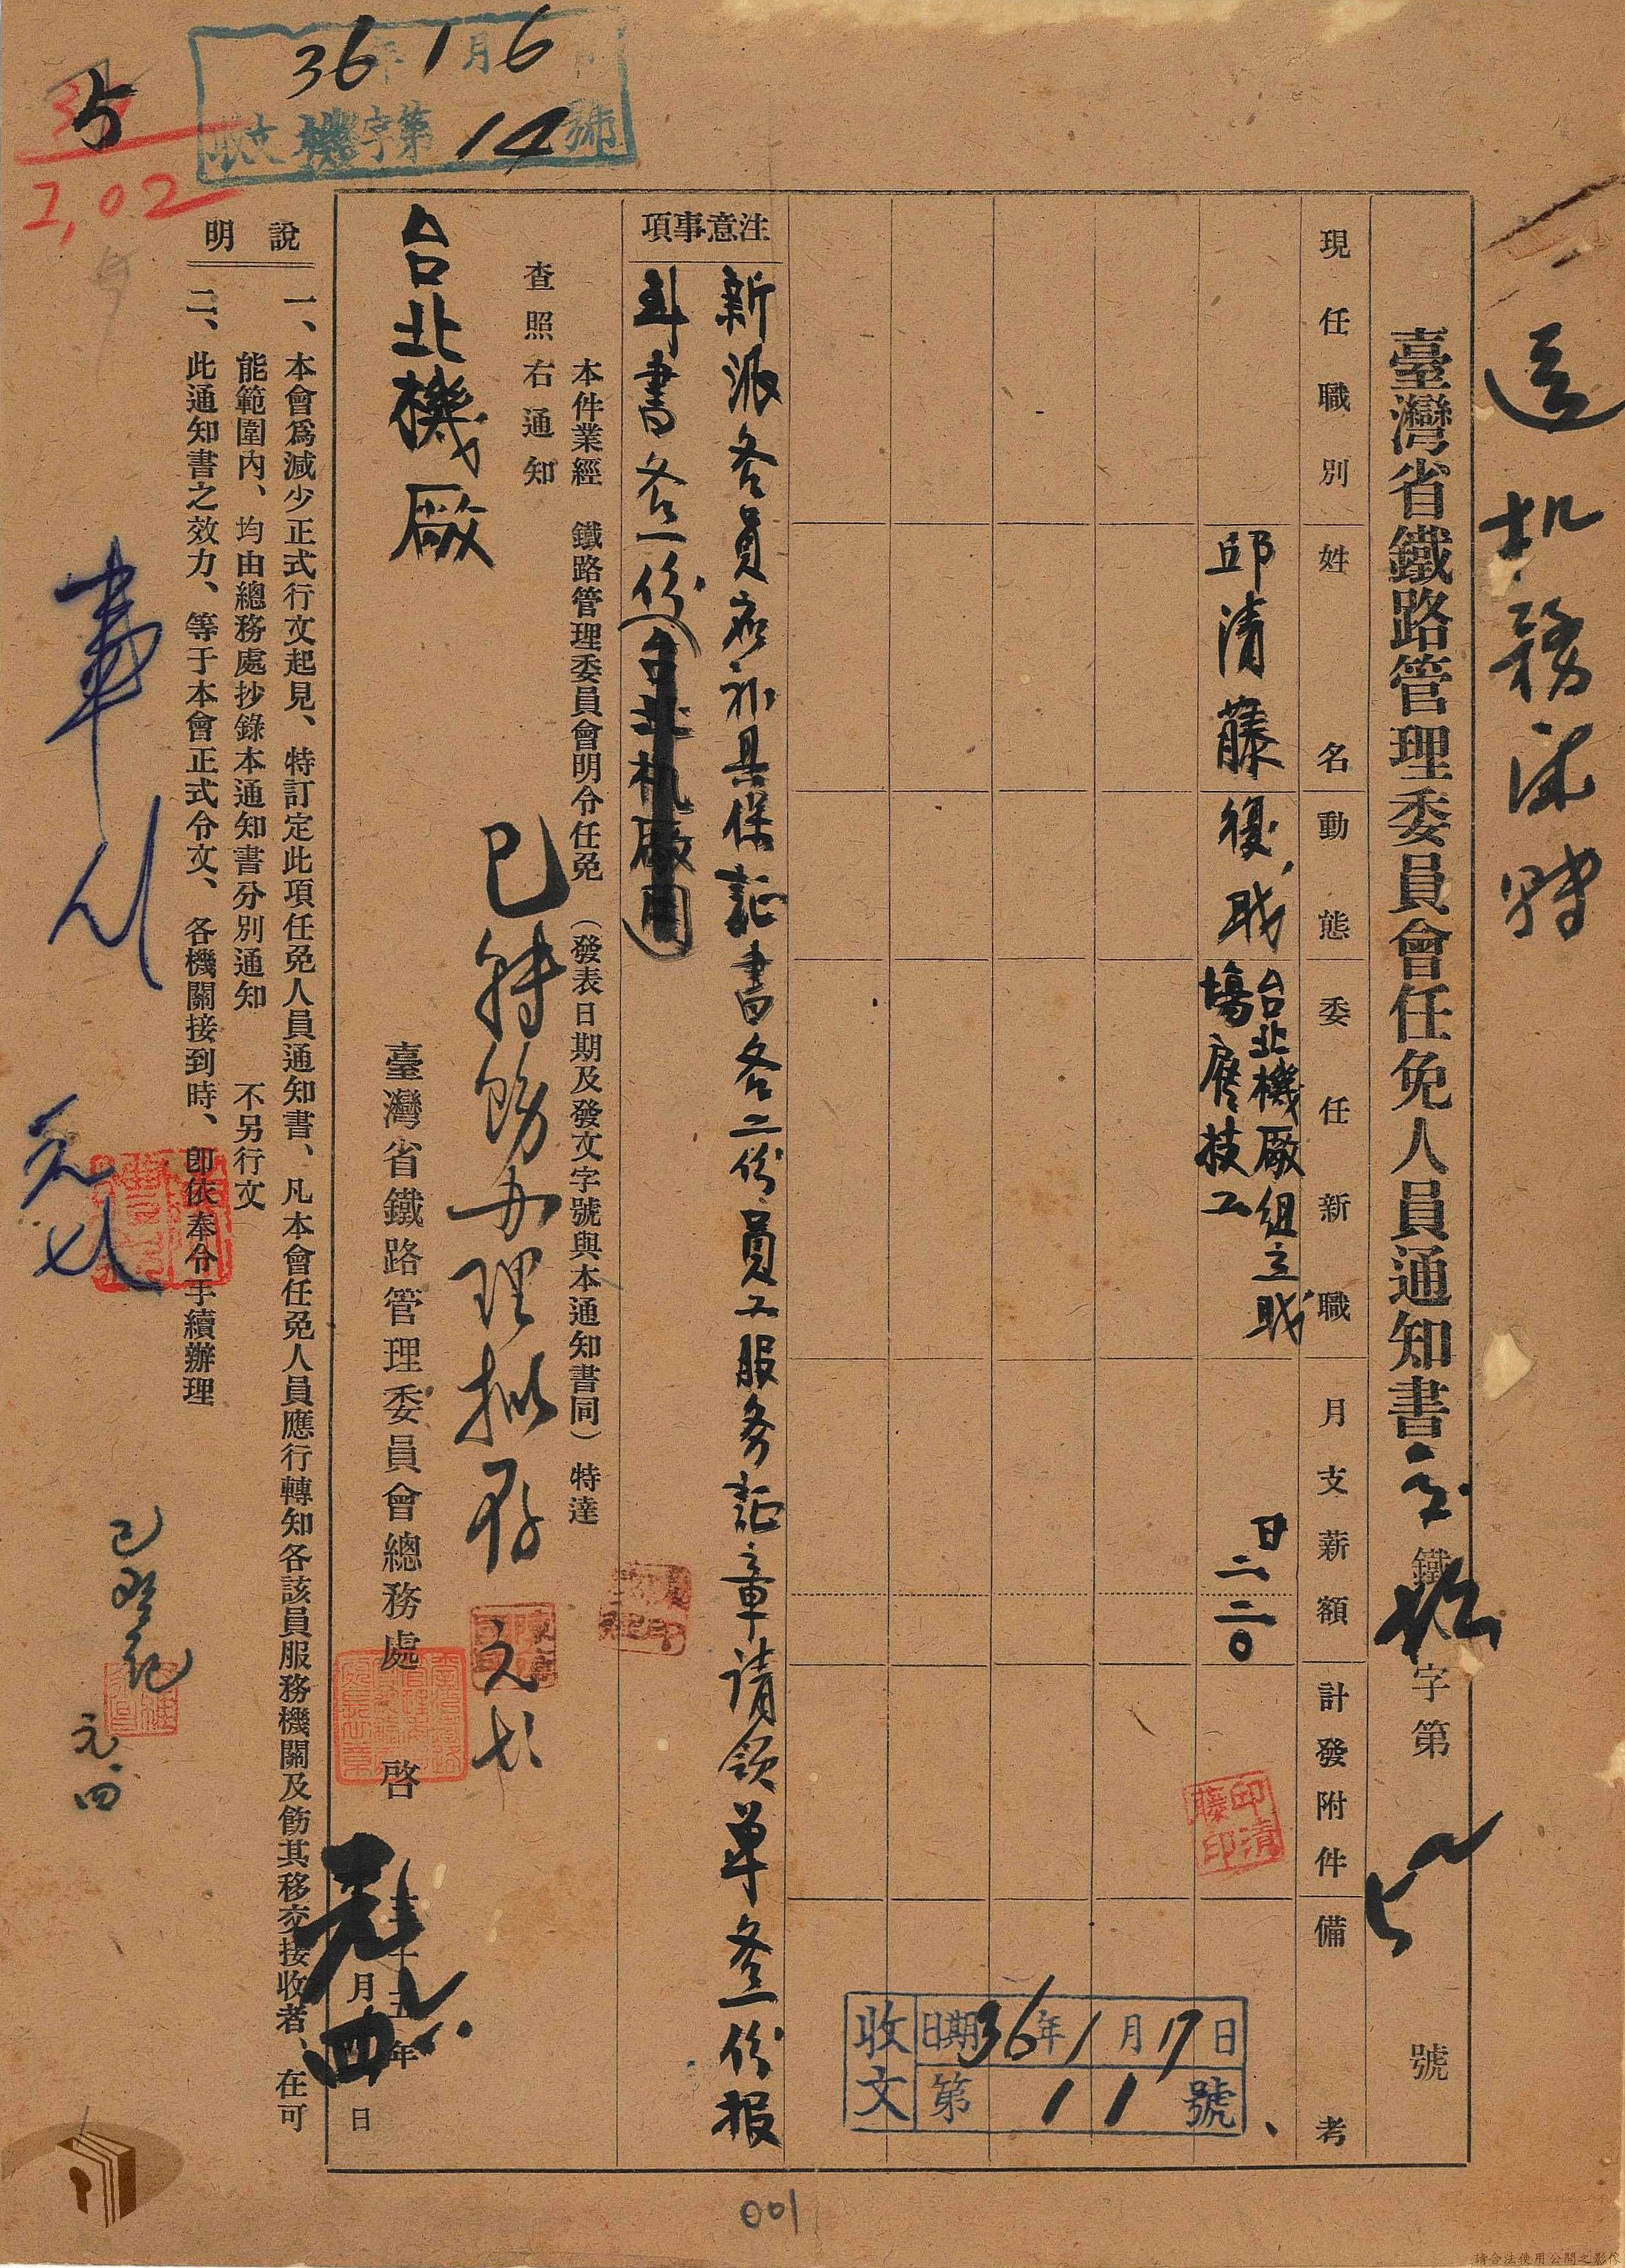 臺灣省鐵路管理委員會任免人員通知書 鐵 字第 號
現任職別 姓名 動態 委任新職 月支薪額 計發附件 備考
邱清藤 復職 台北機廠組立職場雇技工 日二二〇
邱清藤印
收文 日期36年1月17日 第11號
注意事項
新派各員应補具保証書各二份員工服务証章請領单各一份报
到書各一份(台北机廠用)
本件業經 鐵路管理委員會明令任免 (發表日期及發文字號與本通知書同) 特達
查照右通知
已轉飭办理拟存 元七
台北機廠
臺灣省鐵路管理委員會總務處 啓
五年 月四日
說明
一、本會爲減少正式行文起見、特訂定此項任免人員通知書、凡本會任免人員應行轉知各該員服務機關及飭其移交接收者、在可
能範圍內、均由總務處抄錄本通知書分別通知 不另行文
二、此通知書之效力、等于本會正式令文、各機關接到時、卽依奉令手續辦理
36年1月6
收文機字第14號
5
2,02
已登記
元、四
001
請合法使用公開之影像